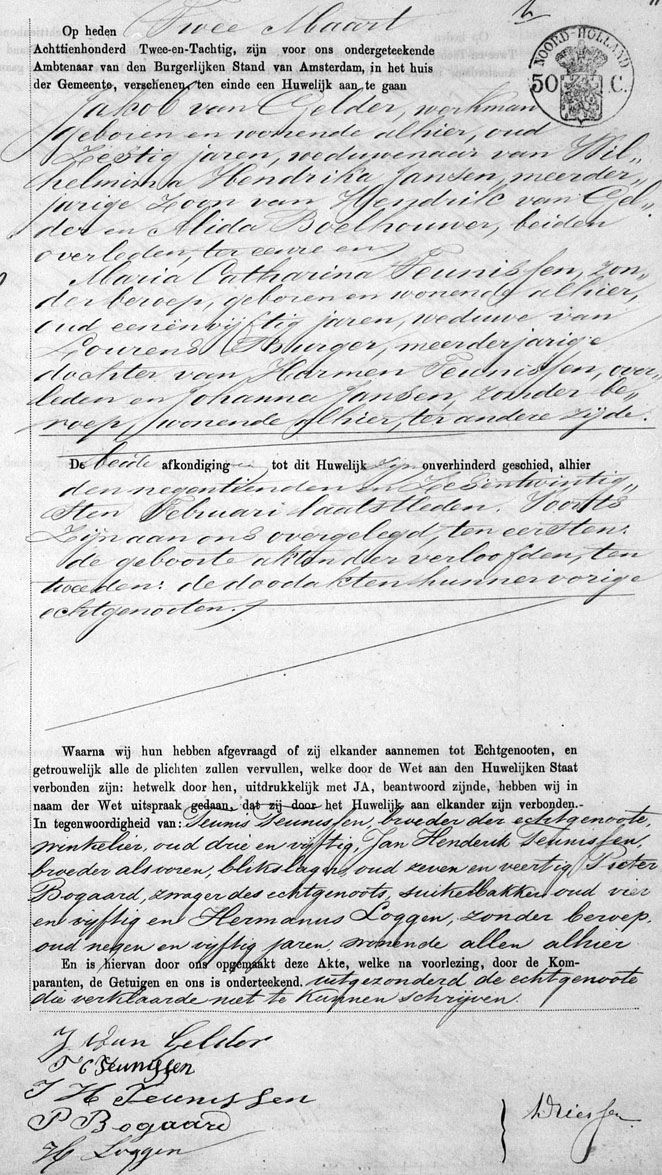 Op heden Twee Maart
Achttienhonderd Twee-en-Tachtig, zijn voor ons ondergeteekende
Ambtenaar van den Burgerlijken Stand van Amsterdam, in het huis
der Gemeente, verschenen, ten einde een Huwelijk aan te gaan
NOORD-HOLLAND
50 C.
Jakob van Gelder, werkman
geboren en wonende alhier, oud
Zestig jaren, weduwenaar van Wil„
helmina Hendrika Jansen, meerder„
jarige Zoon van Hendrik van Gel„
der en Alida Boelhouwer, beiden
overleden, ter eenre en
Maria Catharina Teunissen, zon„
der beroep, geboren en wonende alhier,
oud eenënvijftig jaren, weduwe van
Lourens Burger, meerderjarige
dochter van Harmen Teunissen, over„
leden en Johanna Jansen, zonder be„
roep, wonende alhier, ter andere zijde.
De beide afkondiging tot dit Huwelijk zijn onverhinderd geschied, alhier
den negentienden en Zesentwintig„
sten Februari laatstleden. Voorts
Zijn aan ons overgelegd, ten eersten:
de geboorte akten der verloofden, ten
tweeden: de doodakten hunner vorige
echtgenooten.
Waarna wij hun hebben afgevraagd of zij elkander aannemen tot Echtgenooten, en
getrouwelijk alle de plichten zullen vervullen, welke door de Wet aan den Huwelijken Staat
verbonden zijn: hetwelk door hen, uitdrukkelijk met JA, beantwoord zijnde, hebben wij in
naam der Wet uitspraak gedaan, dat zij door het Huwelijk aan elkander zijn verbonden.-
In tegenwoordigheid van: Teunis Teunissen, broeder der echtgenoote,
winkelier, oud drie en vijftig, Jan Henderik Teunissen,
broeder als voren, blikslager, oud zeven en veertig, Pieter
Bogaard, zwager des echtgenoots, suikerbakker oud vier
en vijftig en Hermanus Loggen, zonder beroep,
oud negen en vijftig jaren, wonende allen alhier
En is hiervan door ons opgemaakt deze Akte, welke na voorlezing, door de Kom-
paranten, de Getuigen en ons is onderteekend. uitgezonderd de echtgenoote
die verklaarde niet te kunnen schrijven.
J van Gelder
Teunissen
J H Teunissen
P Bogaard
H Loggen